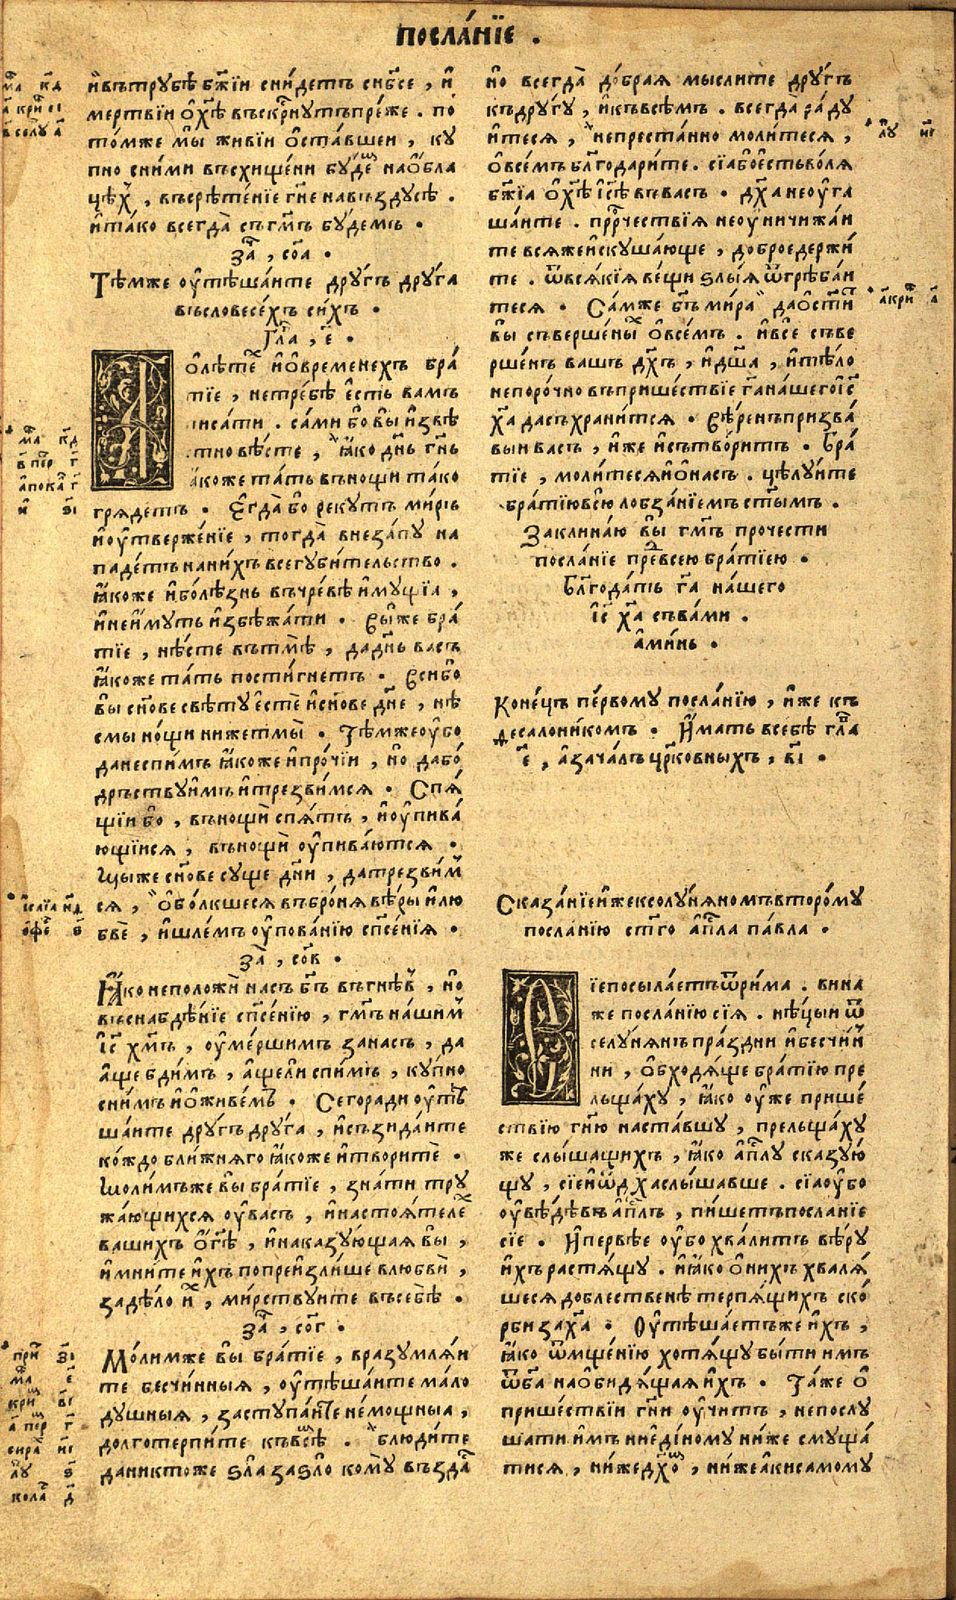 посла́нїе .
и҆ въ трꙋбѣ̀ бж҃їи сни́детъ съ нб҃се , и҆
ме́ртвїи ѻ҆ хѣ҃ въскрⷭ҇нꙋтъ пре́же . по
то́мже мы̀ живїи ѻ҆ставшеи , кꙋ
пно с ни́ми въсхище́ни бꙋ́деⷨ на о҆бла
цѣⷯ , въ срѣ́тенїе гн҃е на въздꙋсѣ .
и҆ та́ко всегда̀ съ гм҃ъ бꙋ́демъ .
заⷱ҇ , со҃а .
Тѣ́мже ᲂу҆тѣша́ите дрꙋ́гъ дрꙋ́га
въ словесе́хъ си́хъ .
Гла҃ , е҃ .
А ѻ҆ лѣ́теⷯ и҆ ѻ҆ временехъ бра́
тїе , не тре́бѣ є҆сть вамъ
писа́ти . са́ми бо вы̀ и҆звѣ́
стно вѣ́сте , ꙗ҆́ко дн҃ь гн҃ь
ꙗ҆коже та́ть въ нощи та́ко
гряде́тъ . Є҆гда́ бо рекꙋ́тъ ми́ръ
и҆ ᲂу҆твержє́нїе , тогда̀ внеза́пꙋ на
паде́тъ на ни́хъ всегꙋби́тельство .
ꙗ҆́коже и҆ болѣ́знь въ чре́вѣ и҆мꙋщїа ,
и҆ не и҆́мꙋть и҆збѣжа́ти . Вы́ же бра́
тїе , нѣ́сте въ тмѣ̀ , да дн҃ь васъ
ꙗ҆́коже та́ть пости́гнетъ . Вси́ бо
вы̀ сн҃ове свѣ́тꙋ є҆стѐ и҆ сн҃ове дн҃е , нѣ
смы но́щи ниже тмы̀ . Тѣ́мже ᲂу҆бо
да не спи́мъ ꙗ҆́коже и҆ про́чїи , но да бо́
дръствꙋимъ и҆ трезви́мся . Спя́
щїи бо , въ нощѝ спя́тъ , и҆ ᲂу҆пива́
ющїися , въ нощѝ ᲂу҆пива́ются .
Мы́ же сн҃ове сꙋще дн҃и , да трезви́мⸯ
ся , ѻ҆бо́лкшеся въ броня вѣ́ры и҆ лю
бвѐ , и҆ шле́мъ ᲂу҆пова́нїю спс҃енїя .
заⷱ҇ , со҃в .
Ꙗ҆́ко не положѝ насъ бг҃ъ въ гнѣ́въ , но
въ снабдѣ́нїе спс҃е́нїю , гм҃ъ на́шимⸯ
іс҃ хм҃ъ , ᲂу҆ме́ршимъ за насъ , да
а҆́ще бди́мъ , а҆́ще ли спи́мъ , кꙋ́пно
с ни́мъ и҆ ѻ҆живе́мъ . Сего ради ᲂу҆тѣ
ша́ите дрꙋ́гъ дрꙋ́га , и҆ съзида́ите
ко́ждо бли́жняго ꙗ҆́коже и҆ творитѐ .
Мо́лимъ же вы̀ бра́тїе , зна́ти трꙋ
жа́ющихся ᲂу҆ васъ , и҆ настоя́телеⷯ
ва́шихъ ѻ҆ гд҃ѣ , и҆ наказꙋ́ющая вы̀ ,
и҆ мни́те и҆́хъ по преизли́ше в любвѝ ,
за дѣ́ло иⷯ , ми́рствꙋите въ себѣ̀ .
заⷱ҇ , со҃г .
Мо́лим же вы̀ бра́тїе , вразꙋмля́и
те бесчи́нныя , ᲂу҆тѣша́ите ма́ло
дꙋ́шныя , застꙋпа́ите не́мощныа ,
долготерпи́те къ всѣ́мъ . блюди́те
да никто́же ѕла̀ за ѕло̀ комꙋ̀ възда́стъ
но всегда̀ до́брая мы́слите дрꙋ́гъ
къ дрꙋ́гꙋ , и҆ къ всѣ́мъ . всегда̀ ра́дꙋ
и҆теся , непреста́нно моли́теся ,
ѻ҆ все́мъ блг҃одари́те . сїа́ бо є҆сть во́ля
бж҃їа ѻ҆ хѣ҃ іс҃ѣ въ васъ . дх҃а не ᲂу҆га
ша́ите . прⷪ҇рчествїя не ᲂу҆ничижа́и
те вся́ же и҆скꙋша́юще , до́брое держи́
те . ѿ вся́кїя ве́щи ѕлы́я ѿгреба́и
теся . Са́м же бг҃ъ ми́ра да ѻ҆ст҃и́тъ
вы̀ съверше́ныⷯ ѻ҆ все́мъ . и҆ всѐ съве
рше́нъ вашъ дх҃ъ , и҆ дш҃а , и҆ тѣ́ло
непоро́чно въ прише́ствїе га҃ на́шего іс҃
ха҃ да съхрани́тся . Вѣ́ренъ призва́
выи васъ , и҆́же и҆ сътвори́тъ . Бра́
тїе , моли́теся и҆ ѻ҆ насъ . цѣлꙋ́ите
бра́тїю всю̀ лобза́нїемъ ст҃ы́мъ .
Заклина́ю вы̀ гм҃ъ прочести́
посла́нїе пред все́ю бра́тїею .
Блг҃ода́ть га҃ на́шего
іс҃ ха҃ съ ва́ми .
а҆ми́нь .
Коне́цъ пе́рвомꙋ посла́нїю , и҆́же къ
десалони́комъ . И҆́мать въ себѣ̀ гла҃въ
е҃ , а҆ зача́лъ цр҃ко́вныхъ , в҃і .
Сказа́нїе и҆́же к солꙋ́няномъ второ́мꙋ
посла́нїю ст҃го а҆пⷭ҇ла па́вла .
Сїе посыла́етъ ѿ ри́ма . вина
же посла́нїю сїя . нѣ́цыи ѿ
селꙋ́нянъ пра́здни и҆ бесчи́н
ни , ѻ҆бходя́ще бра́тїю пре
льща́хꙋ , ꙗ҆́ко ᲂу҆же прише́
ствїю гн҃ю наста́вшꙋ , прельща́хꙋ
же слы́шащихъ , ꙗ҆́ко а҆пⷭ҇лꙋ сказꙋ́ю
щꙋ , сїе и҆ ѿ дх҃а слы́шавше . сїа ᲂу҆́бо
ᲂу҆вѣ́дѣвъ а҆пⷭ҇лъ , пи́шетъ посла́нїе
сїе . И҆ пе́рвѣе ᲂу҆́бо хва́литъ вѣ́рꙋ
и҆́хъ растя́щꙋ . и҆ ꙗ҆́ко ѻ҆ ни́хъ хваля́
шеся до́блественѣ терпя́щихъ ско́
рби за ха҃ . Оу҆тѣша́етъ же и҆́хъ ,
ꙗ҆́ко ѿмще́нїю хотя́щꙋ бы́ти и҆мъ
ѿ бг҃а на ѻ҆би́дящая и҆́хъ . Та́же ѻ҆
прише́ствїи гн҃и ᲂу҆чи́тъ , не послꙋ
шати и҆́мъ ни є҆ди́номꙋ ниже смꙋща́
тися , ни́же дх҃омъ , ни́же а҆́ки самомꙋ